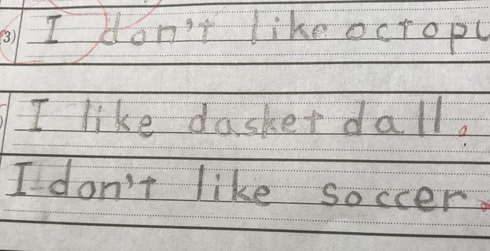 3) I don't like octopu
I like dasket dall.
I don't like soccer.